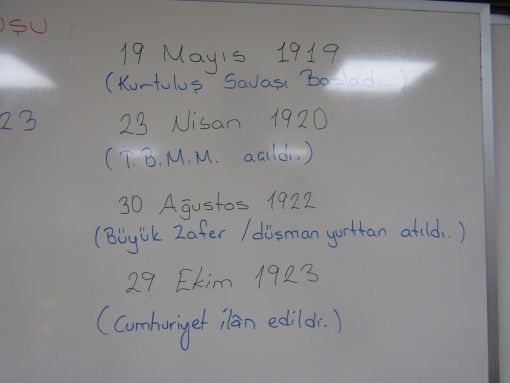 UŞU
19 Mayıs 1919
(Kurtuluş Savaşı Başladı.)
23
23 Nisan 1920
(T.B.M.M. açıldı.)
30 Ağustos 1922
(Büyük Zafer /düşman yurttan atıldı.)
29 Ekim 1923
(Cumhuriyet ilân edildi.)